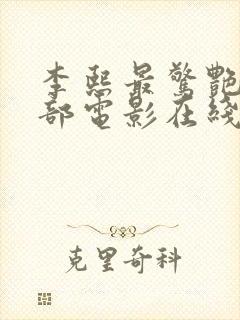 李熙最驚艷
部電影在线
克里奇科